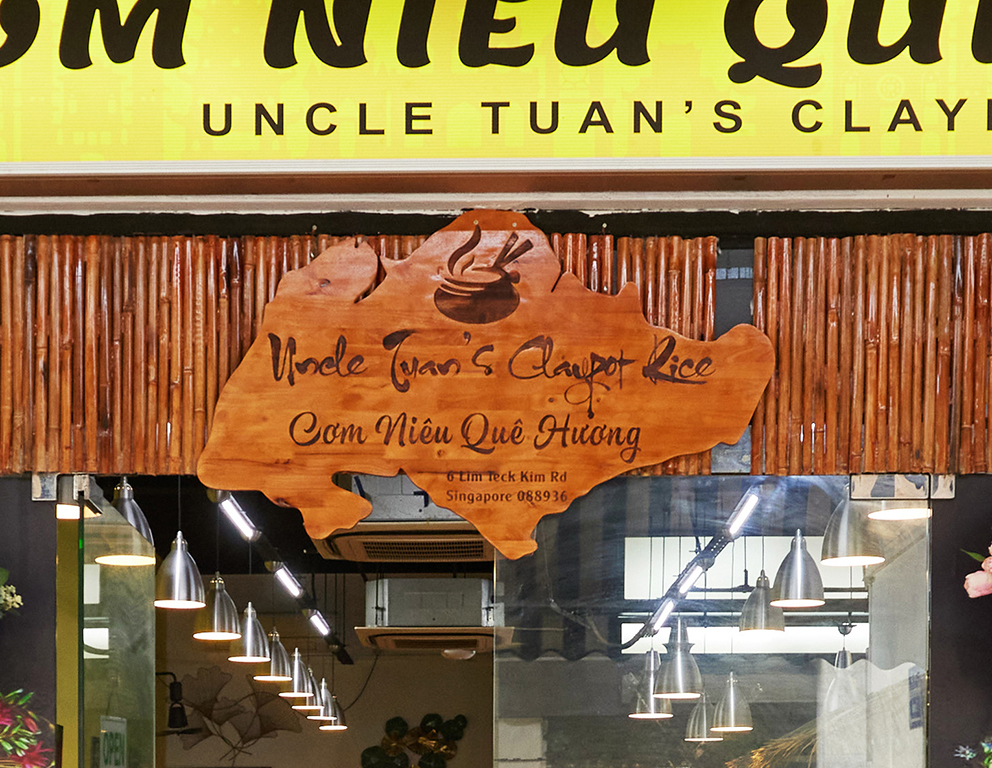 UNCLE TUAN'S
Uncle Tuan's Claypot Rice
Cơm Niêu Quê Hương
6 Lim Teck Kim Rd
Singapore 088936
OPEN